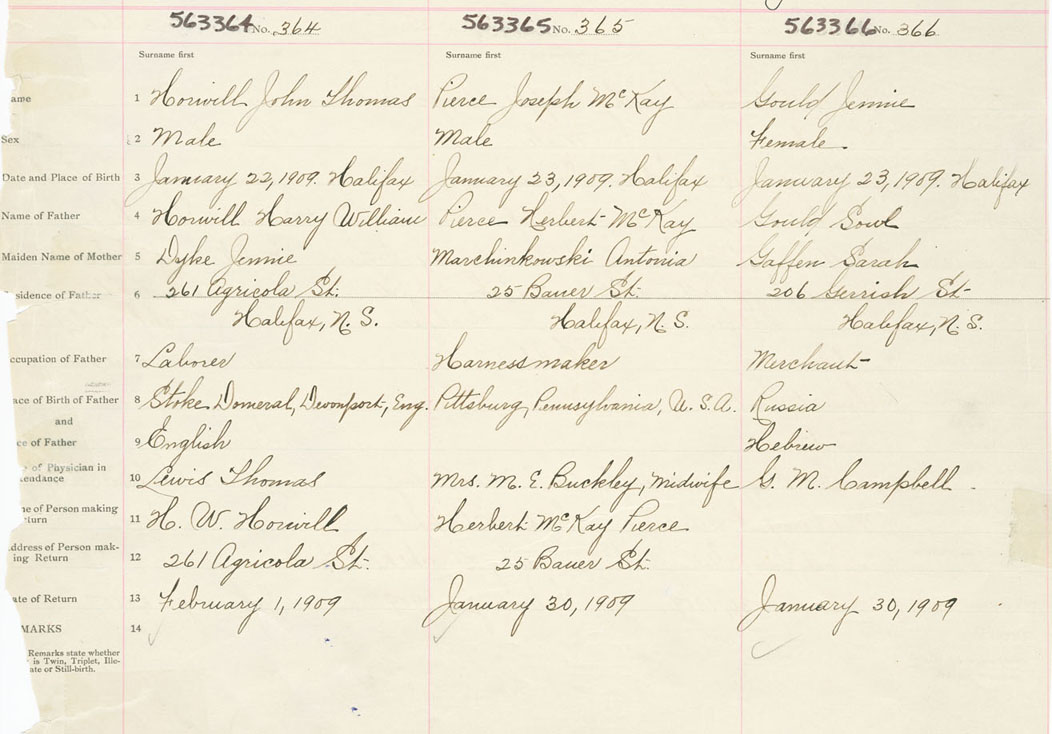 563364 No. 364 563365 No. 365 563366 No. 366
Surname first Surname first Surname first
ame 1 Horwill John Thomas Pierce Joseph McKay Gould Jennie
Sex 2 Male Male Female.
Date and Place of Birth 3 January 22, 1909. Halifax January 23, 1909. Halifax January 23, 1909. Halifax
Name of Father 4 Horwill Harry William Pierce Herbert McKay Gould Sowl
Maiden Name of Mother 5 Dyke Jennie Marchinkowski Antonia Gaffen Sarah
sidence of Father 6 261 Agricola St. 25 Bauer St. 206 Gerrish St.
Halifax, N. S. Halifax, N. S. Halifax, N. S.
ccupation of Father 7 Laborer Harnessmaker Merchant
ace of Birth of Father 8 Stoke Domeral, Devonport, Eng. Pittsburg, Pennsylvania, U. S. A. Russia
and
ce of Father 9 English Hebrew
e of Physician in
tendance 10 Lewis Thomas Mrs. M. E. Buckley, Midwife G. M. Campbell.
me of Person making
turn 11 H. W. Horwill Herbert McKay Pierce
ddress of Person mak-
ing Return 12 261 Agricola St. 25 Bauer St.
ate of Return 13 February 1, 1909 January 30, 1909 January 30, 1909
MARKS 14
Remarks state whether
is Twin, Triplet, Ille-
ate or Still-birth.